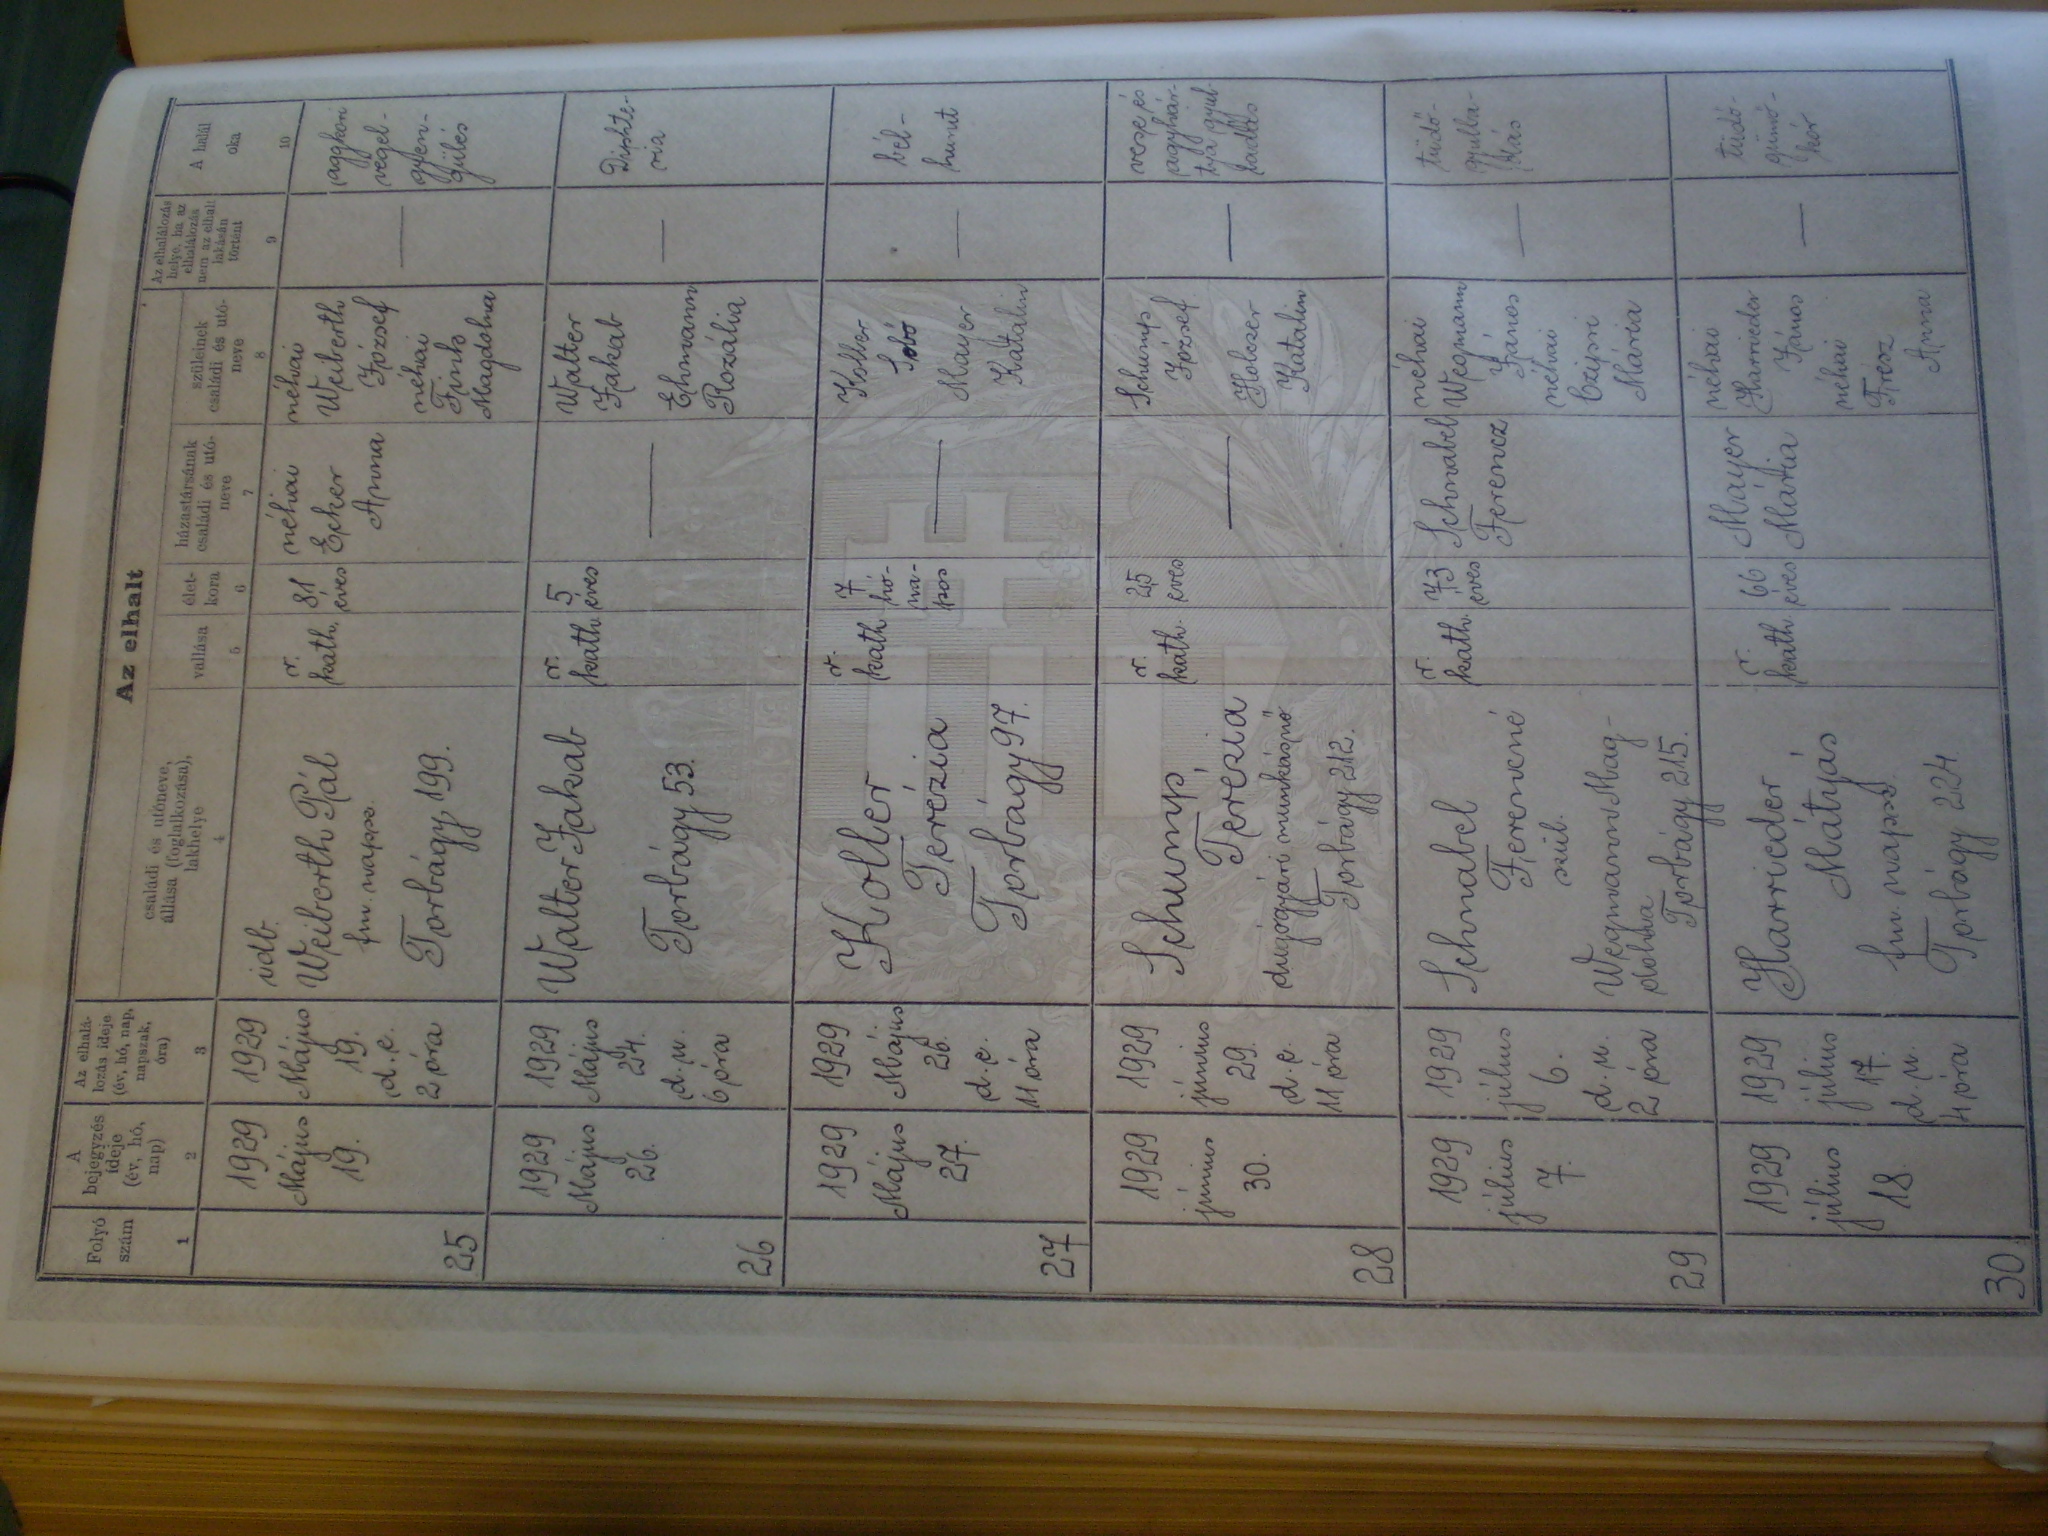 Az elhalt
Folyó
szám
A
bejegyzés
ideje
(év, hó,
nap)
Az elhalá-
lozás ideje
(év, hó, nap,
napszak,
óra)
családi és utóneve,
állása (foglalkozása),
lakhelye
vallása
élet-
kora
házastársának
családi és utó-
neve
szüleinek
családi és utó-
neve
Az elhalálozás
helye, ha az
elhalálozás
nem az elhalt
lakásán
történt
A halál
oka
1
2
3
4
5
6
7
8
9
10
25
1929
Május
19.
1929
Május
19.
d.e.
2 óra
idb.
Weiberth Pál
fm. naps.
Torbágy 199.
r.
kath.
81
éves
néhai
Ecker
Anna
néhai
Weiberth
József
néhai
Fink
Magdolna
aggkori
végel-
gyen-
gülés
26
1929
Május
26.
1929
Május
24.
d.u.
6 óra
Walter Jakab
Torbágy 53.
r.
kath.
5
éves
—
Walter
Jakab
Ehmann
Rozália
—
Diphte-
ria
27
1929
Május
27.
1929
Május
26.
d.e.
11 óra
Koller
Terézia
Torbágy 97.
r.
kath.
7
hó-
na-
pos
—
Koller
Mayer
Katalin
—
bél-
hurut
28
1929
június
30.
1929
június
29.
d.e.
11 óra
Schump
Terézia
dugógyári munkásnő
Torbágy 212.
r.
kath.
25
éves
—
Schump
József
Holczer
Katalin
—
vese és
agyhár-
tya gyul-
ladás
29
1929
július
7.
1929
július
6.
d.u.
2 óra
Schnabel
Ferencné
szül.
Wegmann Mag-
dolna
Torbágy 215.
r.
kath.
73
éves
Schnabel
Ferencz
néhai
Wegmann
János
néhai
Mária
—
tüdő-
gyulla-
dás
30.
1929
július
18
1929
július
17.
d.u.
4 óra
Harrieder
Mátyás
fm. naps.
Torbágy 224
r.
kath.
66
éves
Mayer
Mária
néhai
Harrieder
János
néhai
Friesz
Anna
—
tüdő-
gümő-
kór